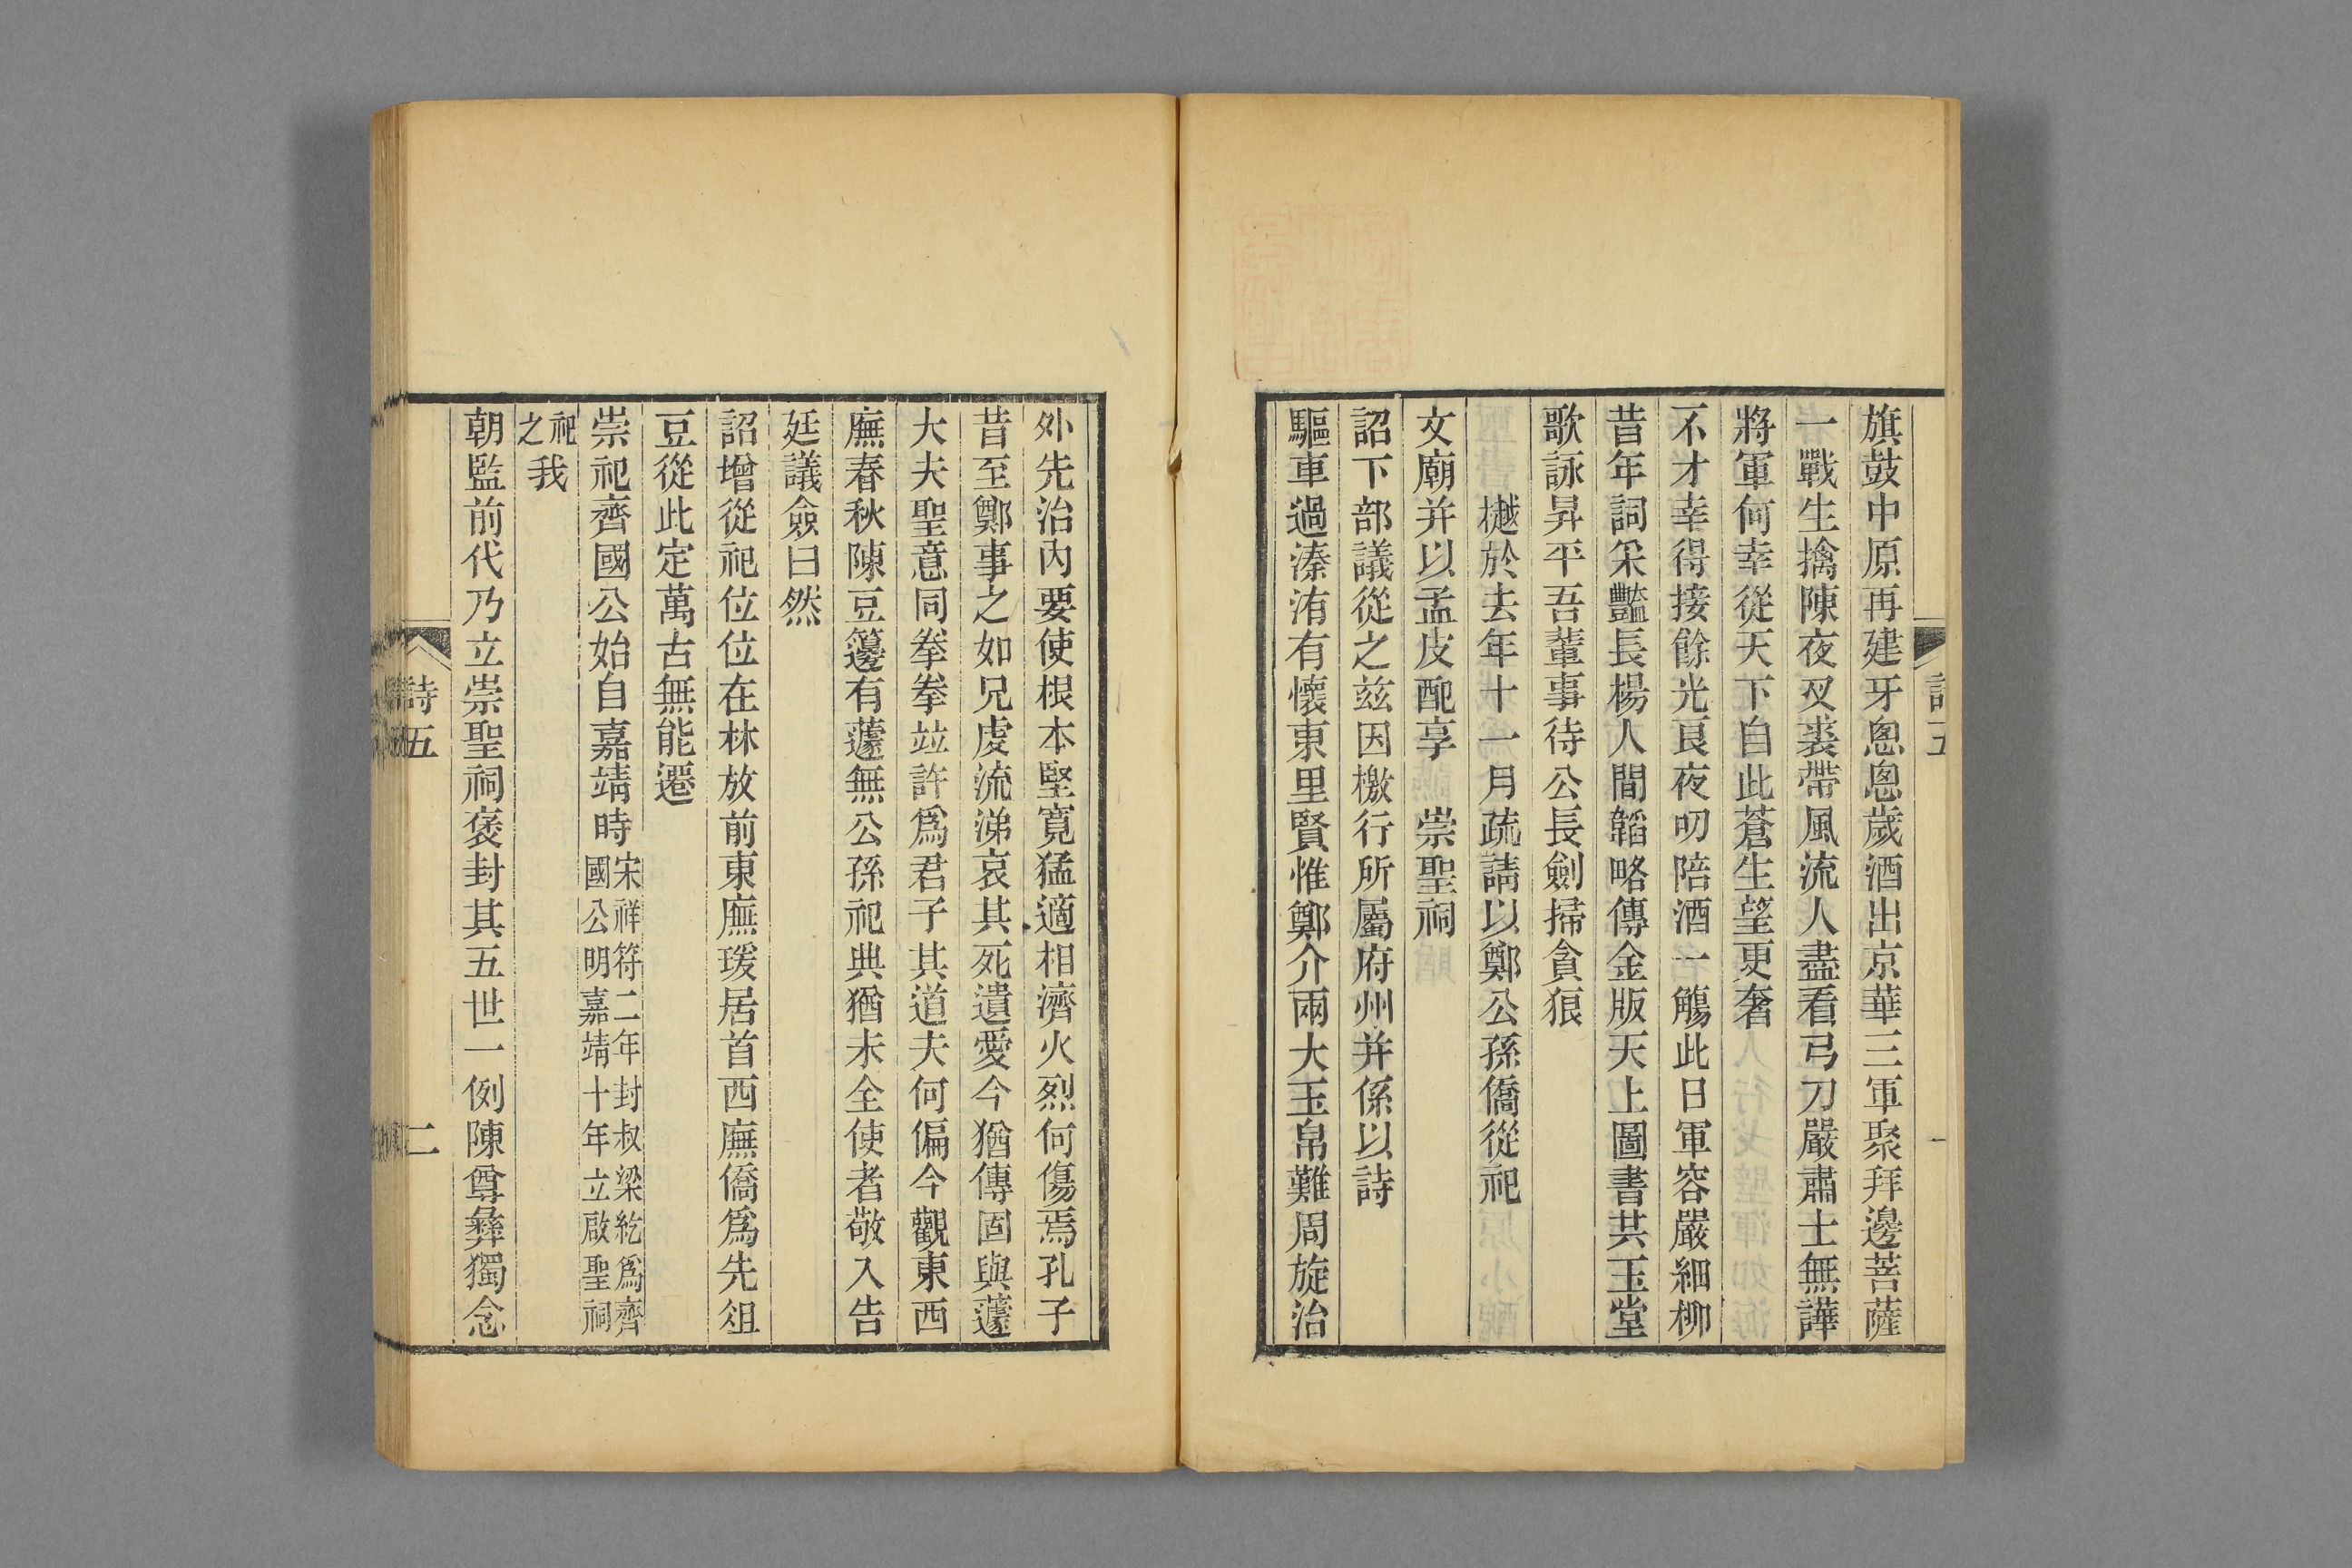 旗鼓中原再建牙悤悤歲酒出京華三軍聚拜邊菩薩
一戰生擒陳夜叉裘帶風流人盡看弓刀嚴肅士無譁
將軍何幸從天下自此蒼生望更奢
不才幸得接餘光良夜叨陪酒一觴此日軍容嚴細柳
昔年詞采豔長楊人間韜略傳金版天上圖書共玉堂
歌詠昇平吾輩事待公長劍掃貪狼
樾於去年十一月疏請以鄭公孫僑從祀
文廟并以孟皮配享 崇聖祠
詔下部議從之茲因檄行所屬府州并係以詩
驅車過溱洧有懷東里賢惟鄭介兩大玉帛難周旋治
外先治內要使根本堅寬猛適相濟火烈何傷焉孔子
昔至鄭事之如兄虔流涕哀其死遺愛今猶傳固與蘧
大夫聖意同拳拳竝許爲君子其道夫何偏今觀東西
廡春秋陳豆籩有蘧無公孫祀典猶未全使者敬入告
廷議僉曰然
詔增從祀位位在林放前東廡瑗居首西廡僑爲先俎
豆從此定萬古無能遷
崇祀齊國公始自嘉靖時宋祥符二年封叔梁紇爲齊
國公明嘉靖十年立啟聖祠
祀
之我
朝監前代乃立崇聖祠褒封其五世一例陳尊彝獨念
詩五
二